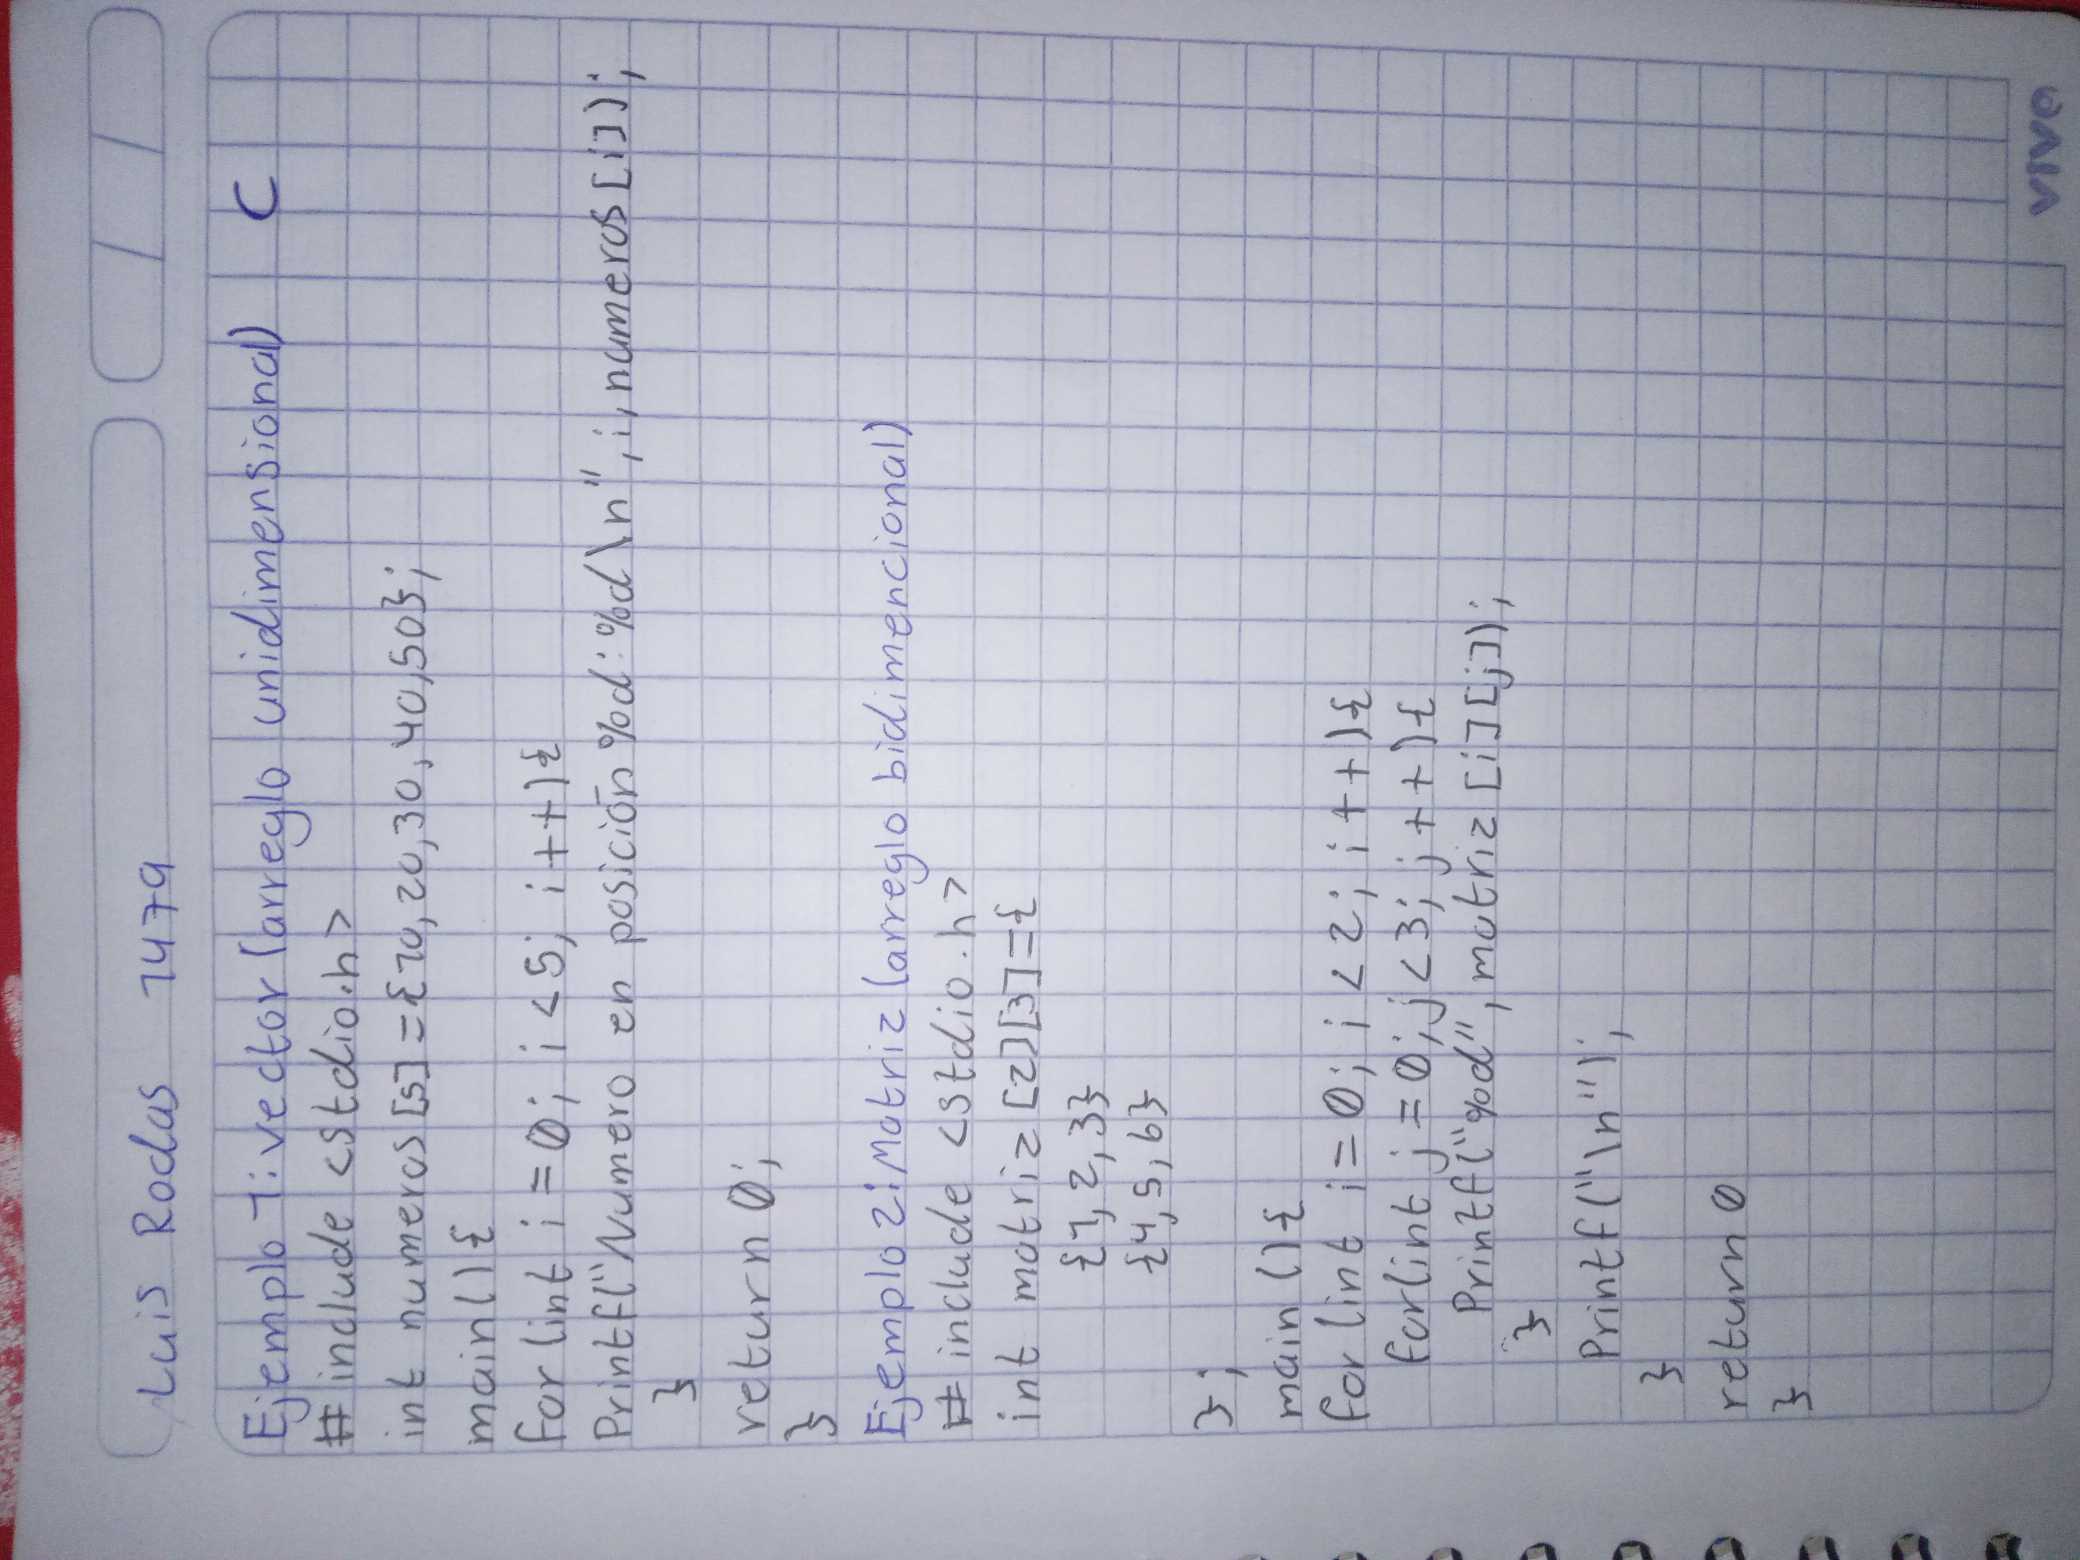 Luis Rodas 1479
Ejemplo 1: vector (arreglo unidimensional) C
# include <stdio.h>
int numeros[5]={10,20,30,40,50};
main(){
for(int i=0; i<5; i++){
Printf("Numero en posición %d:%d\n",i,numeros[i]);
}
return 0;
}
Ejemplo 2: Matriz (arreglo bidimencional)
# include <stdio.h>
int matriz[2][3]={
{1,2,3}
{4,5,6}
};
main(){
for(int i=0; i<2; i++){
for(int j=0; j<3; j++){
Printf("%d",matriz[i][j]);
}
Printf("\n");
}
return 0
}
vive